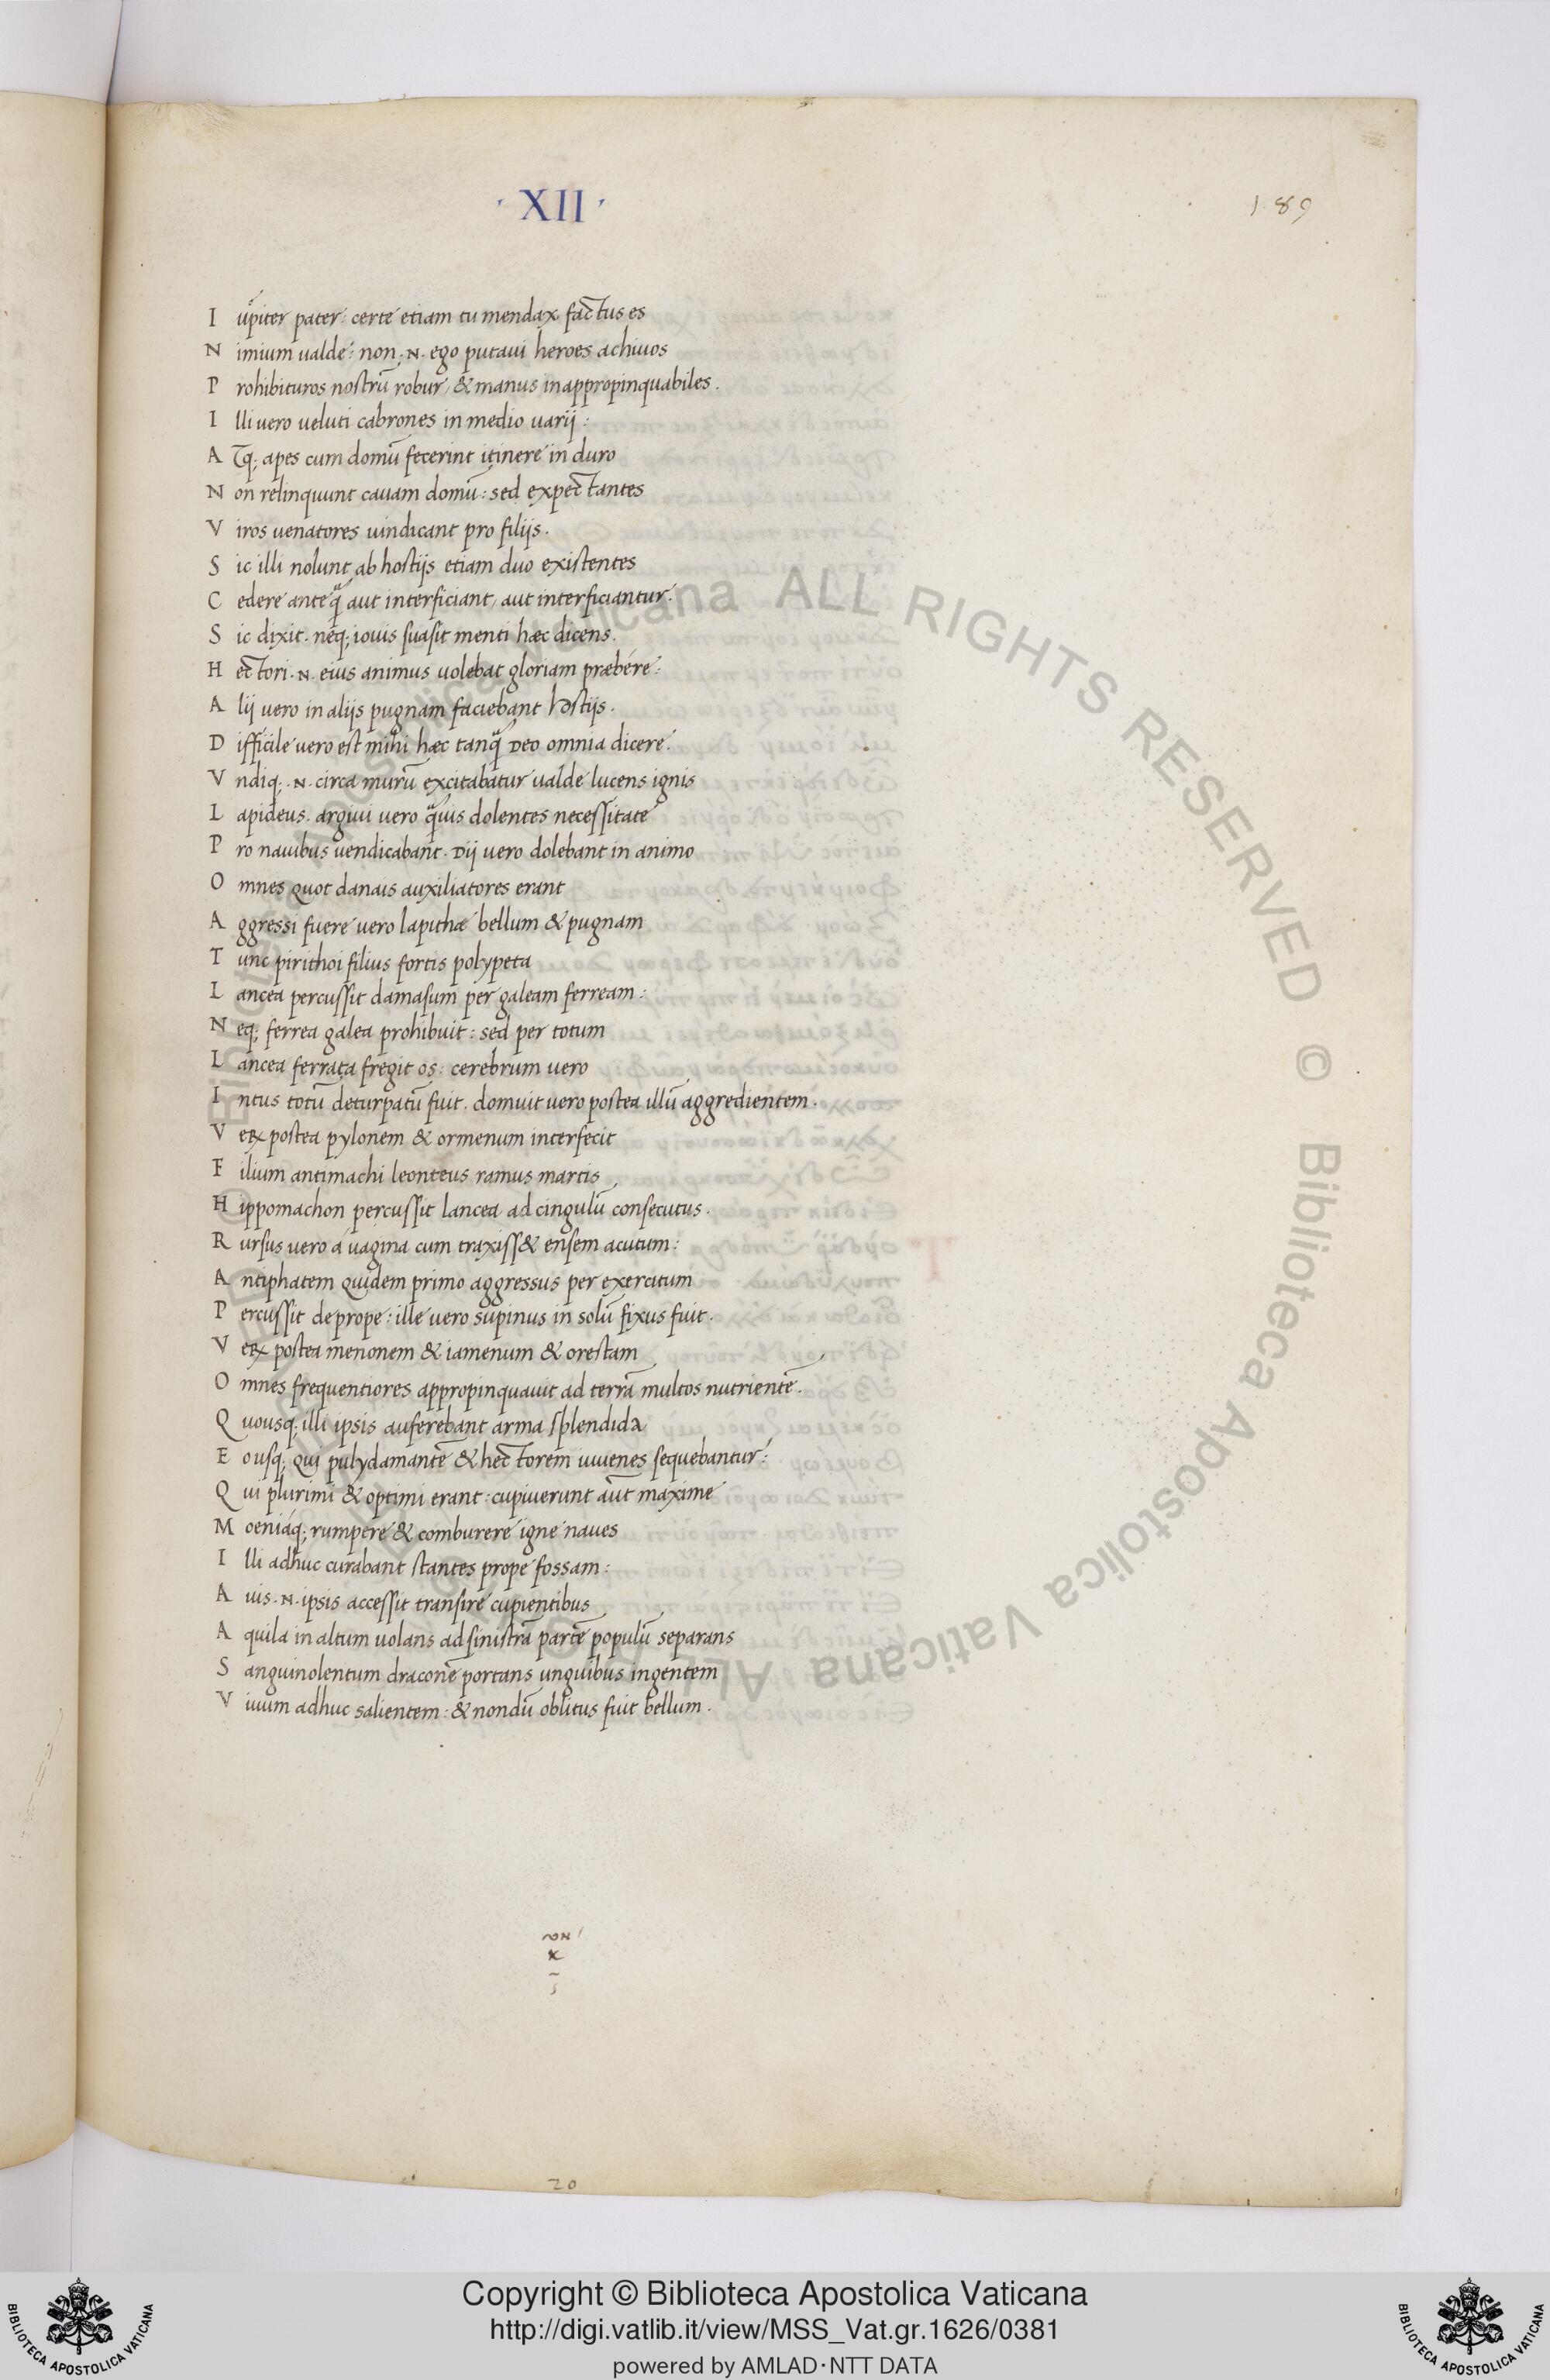 · XII ·
189
I uppiter pater: certe etiam tu mendax factus es
N imium ualde: non .N. ego putaui heroes achiuos
P rohibituros nostrū robur, & manus inappropinquabiles.
I lli uero ueluti cabrones in medio uarij:
A tq; apes cum domū fecerint itinere in duro
N on relinquunt cauam domū: sed expectantes
V iros uenatores uindicant pro filijs.
S ic illi nolunt ab hostijs etiam duo existentes
C edere anteq̃ aut interficiant, aut interficiantur.
S ic dixit. neq; iouis suasit menti hæc dicens.
H ectori .N. eius animus uolebat gloriam præbere:
A lij uero in alijs pugnam faciebant hostijs.
D ifficile uero est mihi hæc tanq̃ Deo omnia dicere.
V ndiq; .N. circa murū excitabatur ualde lucens ignis
L apideus. argiui uero q̃uis dolentes necessitate
P ro nauibus uendicabant. Dij uero dolebant in animo
O mnes quot danais auxiliatores erant
A ggressi fuere uero lapithæ bellum & pugnam
T unc pirithoi filius fortis polypeta
L ancea percussit damasum per galeam ferream:
N eq; ferrea galea prohibuit: sed per totum
L ancea ferrata fregit os: cerebrum uero
I ntus totū deturpatū fuit. domuit uero postea illū aggredientem.
V eꝝ postea pylonem & ormenum interfecit
F ilium antimachi leonteus ramus martis
H ippomachon percussit lancea ad cingulū consecutus.
R ursus uero a uagina cum traxiss& ensem acutum:
A ntiphatem quidem primo aggressus per exercitum
P ercussit de prope: ille uero supinus in solū fixus fuit.
V eꝝ postea menonem & iamenum & orestam
O mnes frequentiores appropinquauit ad terrā multos nutrientē.
Q uousq; illi ipsis auferebant arma splendida
E ousq; qui pulydamantē & hectorem iuuenes sequebantur:
Q ui plurimi & optimi erant: cupiuerunt aūt maxime
M oeniaq; rumpere & comburere igne naues
I lli adhuc curabant stantes prope fossam:
A uis .N. ipsis accessit transire cupientibus
A quila in altum uolans ad sinistrā partē populū separans
S anguinolentum draconē portans unguibus ingentem
V iuum adhuc salientem: & nondū oblitus fuit bellum.
20
Copyright © Biblioteca Apostolica Vaticana
http://digi.vatlib.it/view/MSS_Vat.gr.1626/0381
powered by AMLAD·NTT DATA
BIBLIOTECA APOSTOLICA VATICANA
BIBLIOTECA APOSTOLICA VATICANA
Biblioteca Apostolica Vaticana ALL RIGHTS RESERVED © Biblioteca Apostolica Vaticana ALL RIGHTS RESERVED ©